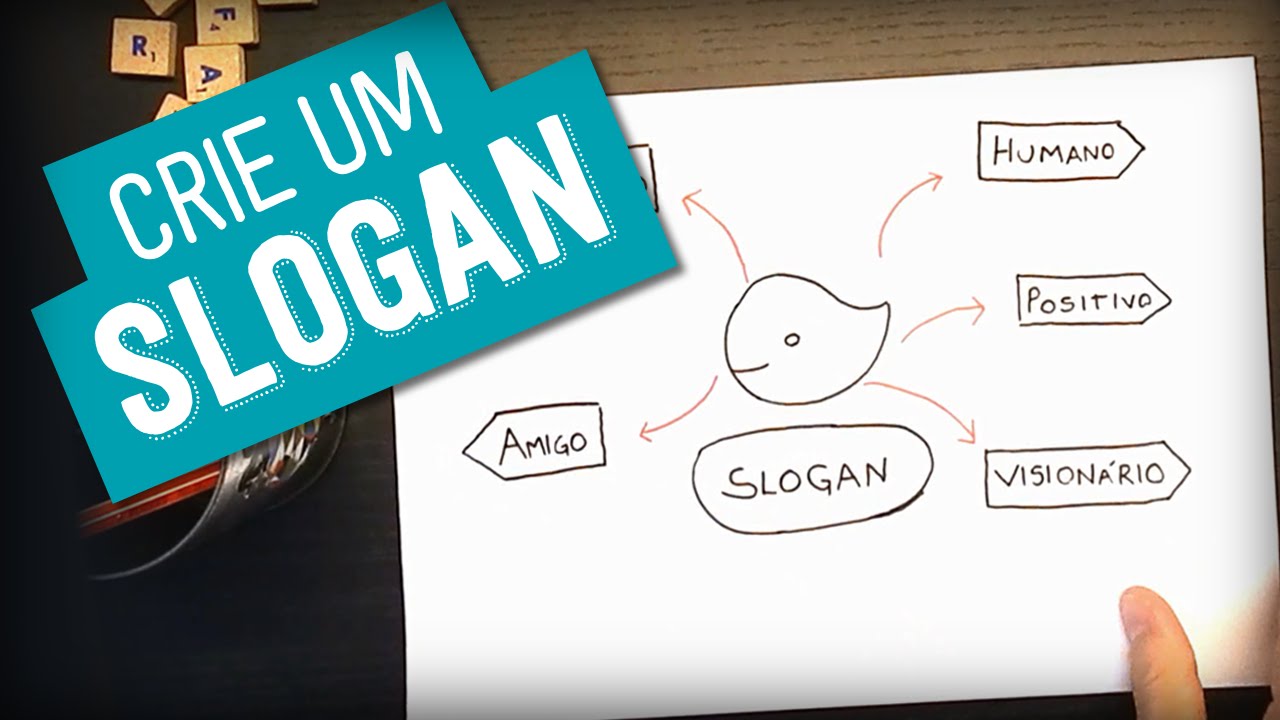 R1
F4
A1
CRIE UM
SLOGAN
HUMANO
POSITIVO
AMIGO
SLOGAN
VISIONÁRIO